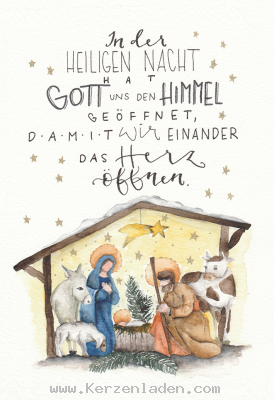 In der
HEILIGEN NACHT
HAT
GOTT UNS DEN HIMMEL
GEÖFFNET,
D·A·M·I·T wir EINANDER
DAS Herz
öffnen.
www.Kerzenladen.com